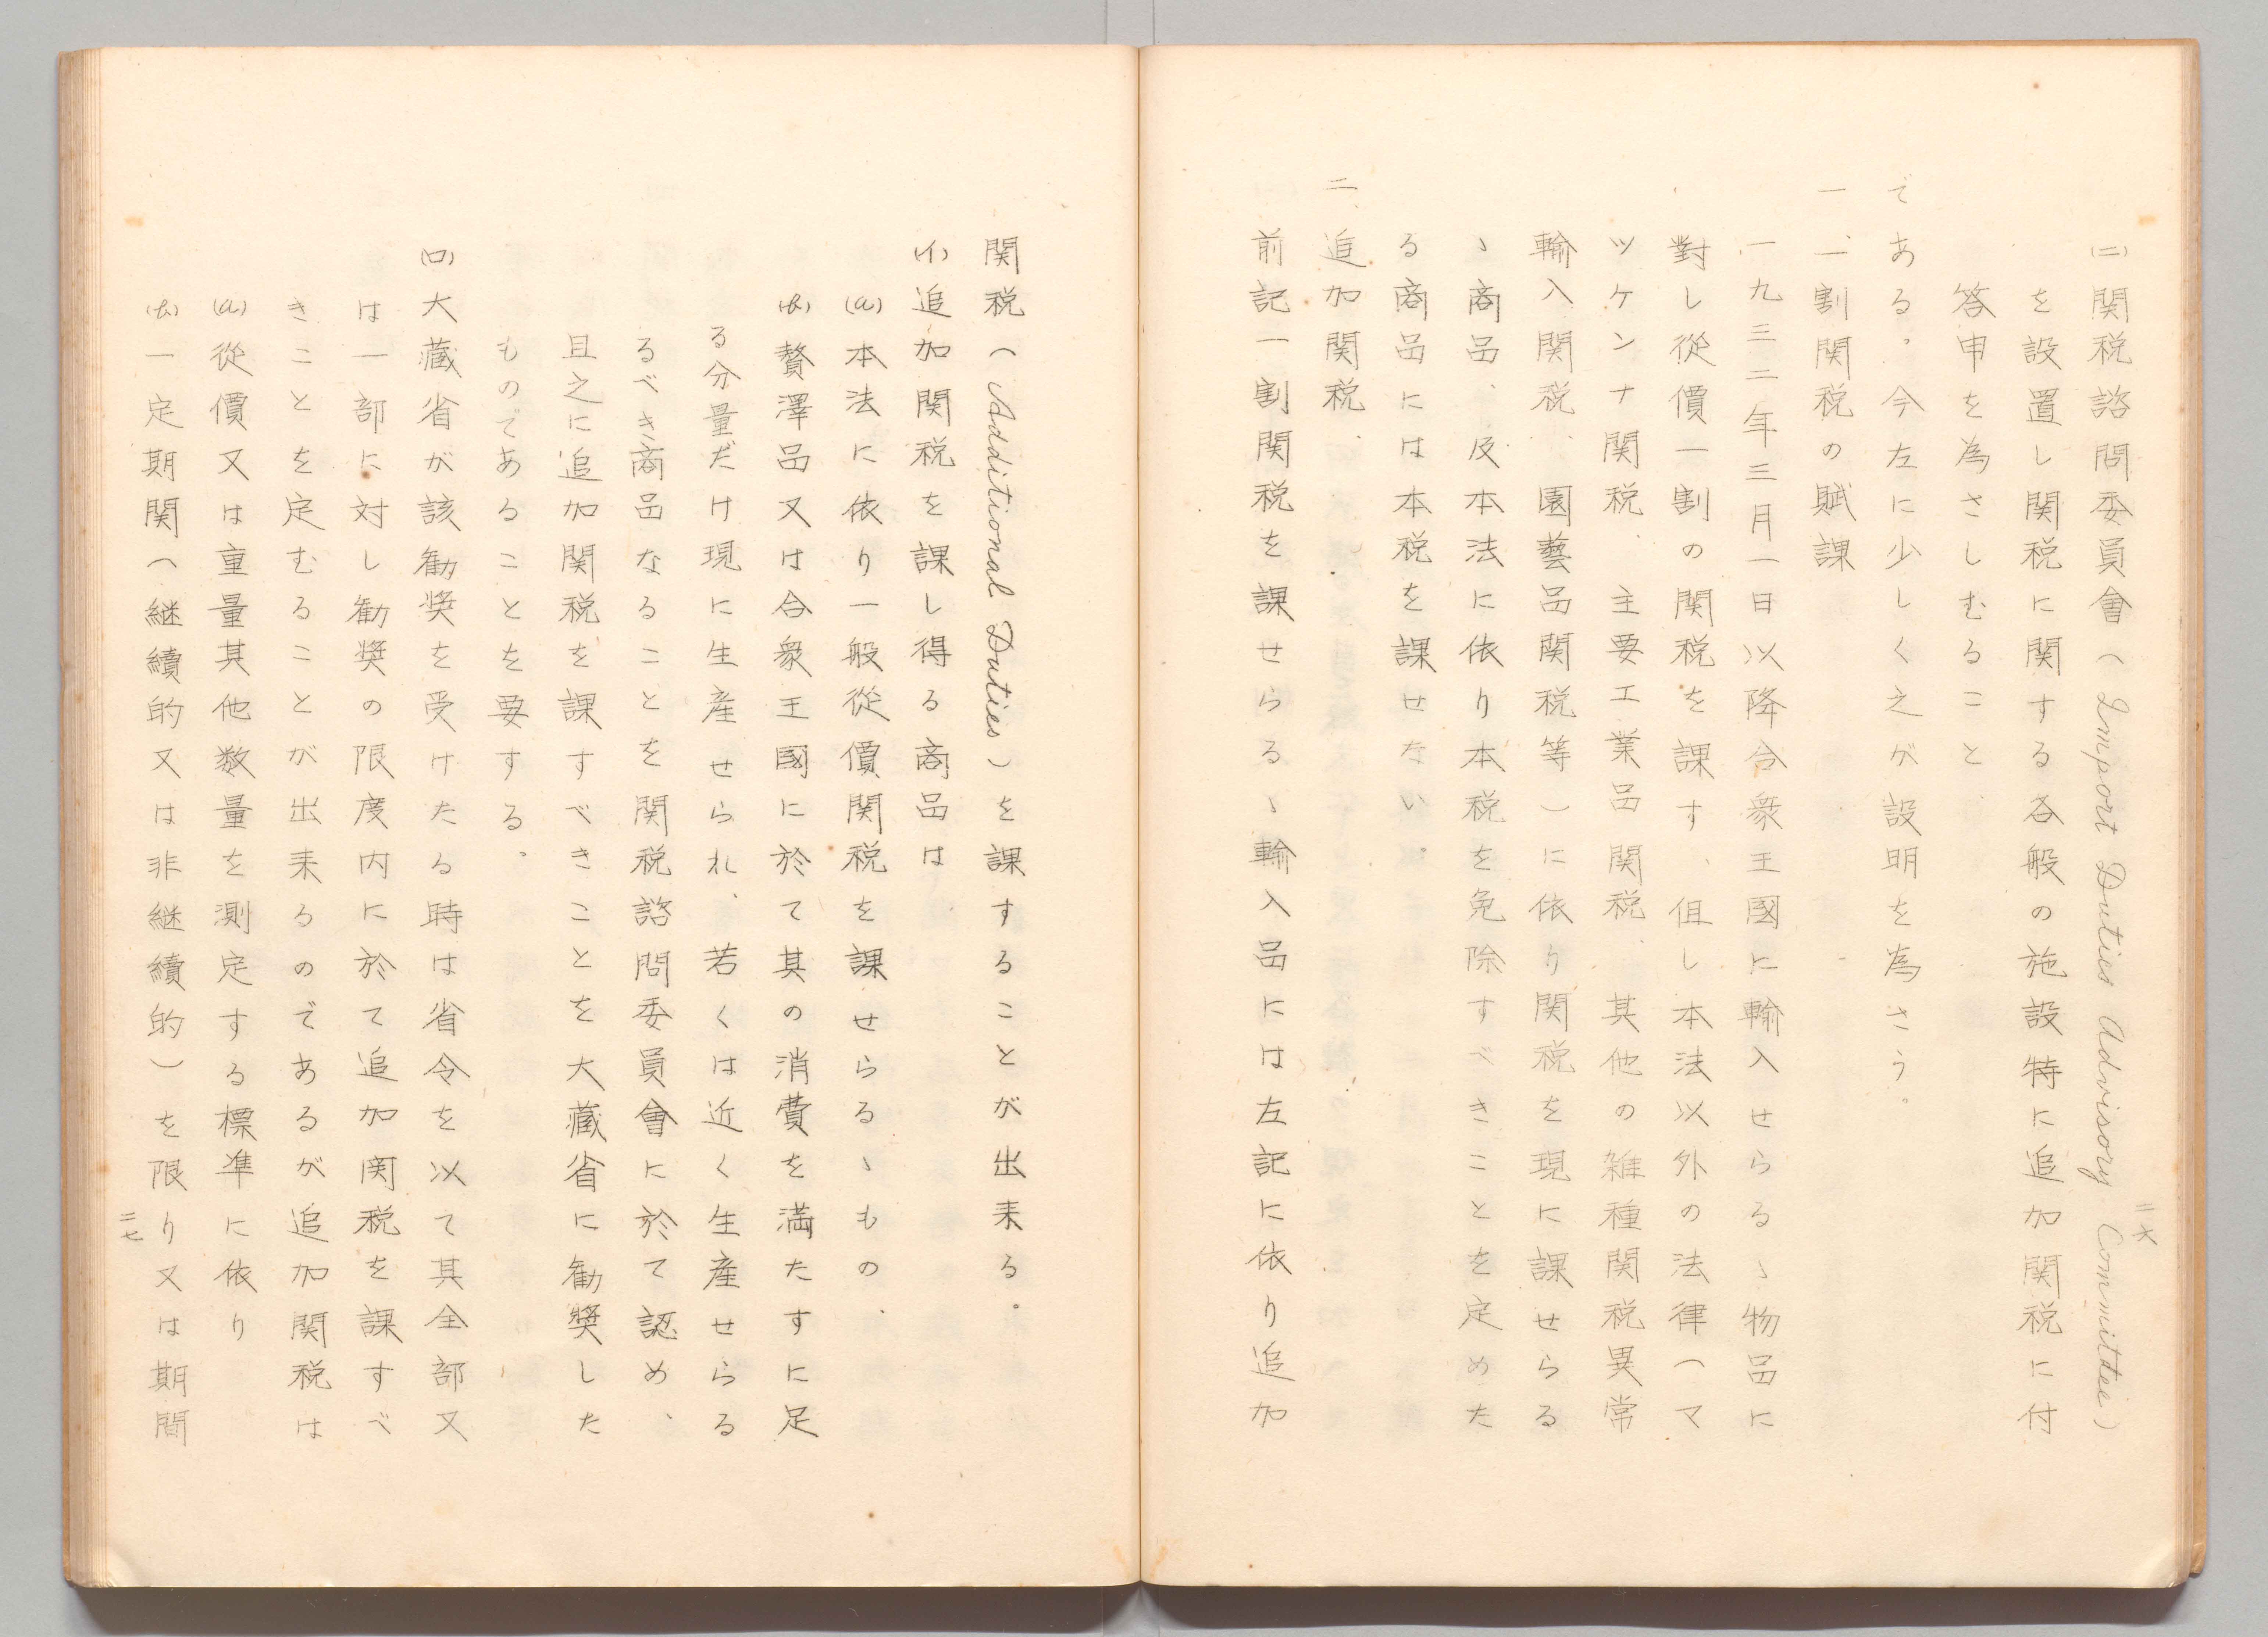 二六
(ニ)関税諮問委員會（Import Duties Advisory Committee）
を設置し関税に関する各般の施設特に追加関税に付
答申を為さしむること
である。今左に少しく之が説明を為さう。
一、一割関税の賦課
一九三二年三月一日以降合衆王國に輸入せらるゝ物品に
對し從價一割の関税を課す、但し本法以外の法律（マ
ツケンナ関税、主要工業品関税、其他の雑種関税異常
輸入関税、園藝品関税等）に依り関税を現に課せらる
ゝ商品、及本法に依り本税を免除すべきことを定めた
る商品には本税を課せない。
二、追加関税、
前記一割関税を課せらるゝ輸入品には左記に依り追加
関税（Additional Duties）を課することが出来る。
(イ)追加関税を課し得る商品は
(a)本法に依り一般從價関税を課せらるゝもの、
(b)贅澤品又は合衆王國に於て其の消費を満たすに足
る分量だけ現に生産せられ、若くは近く生産せらる
るべき商品なることを関税諮問委員會に於て認め、
且之に追加関税を課すべきことを大藏省に勧奬した
ものであることを要する。
(ロ)大藏省が該勧奬を受けたる時は省令を以て其全部又
は一部に対し勧奬の限度内に於て追加関税を課すべ
きことを定むることが出来るのであるが追加関税は
(a)從價又は重量其他数量を測定する標準に依り
(b)一定期関（継續的又は非継續的）を限り又は期間
二七